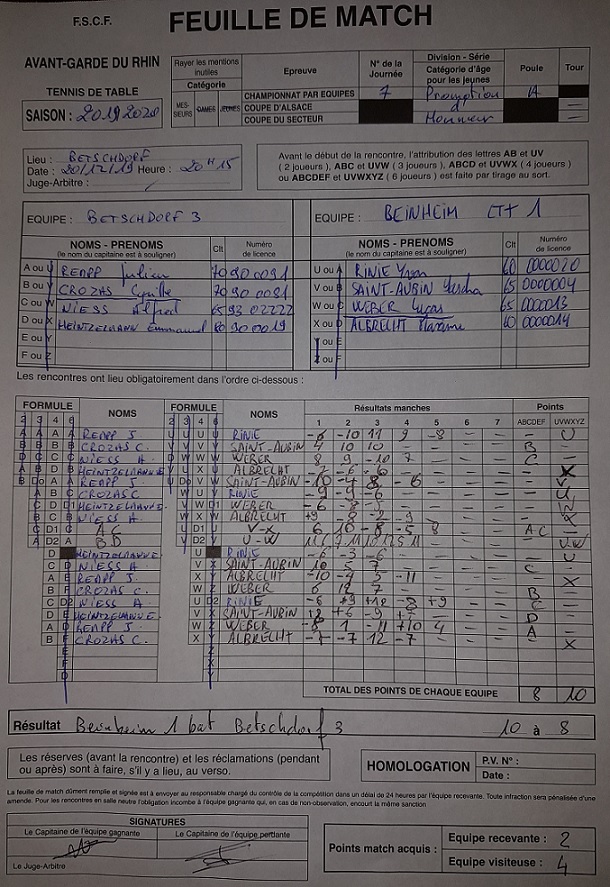 F.S.C.F.
FEUILLE DE MATCH
AVANT-GARDE DU RHIN
TENNIS DE TABLE
SAISON : 2019 2020
Rayer les mentions inutiles
Catégorie
MES-SIEURS DAMES JEUNES
Epreuve
CHAMPIONNAT PAR EQUIPES
COUPE D'ALSACE
COUPE DU SECTEUR
N° de la Journée
7
Division - Série
Catégorie d'âge pour les jeunes
Promotion
d'
Honneur
Poule
A
Tour
Lieu : BETSCHDORF
Date : 20/12/19 Heure : 20H15
Juge-Arbitre :
Avant le début de la rencontre, l'attribution des lettres AB et UV
( 2 joueurs ), ABC et UVW ( 3 joueurs ), ABCD et UVWX ( 4 joueurs )
ou ABCDEF et UVWXYZ ( 6 joueurs ) est faite par tirage au sort.
EQUIPE : BETSCHDORF 3
EQUIPE : BEINHEIM CTT 1
NOMS - PRENOMS Clt Numéro de licence
(le nom du capitaine est à souligner)
A ou U REAPP Julien 70 90 0091
B ou V CROZAS Cyrille 70 90 0081
C ou W NIESS Alfred 65 93 02222
D ou X HEINTZELMANN Emmanuel 80 90 0019
E ou Y
F ou Z
NOMS - PRENOMS Clt Numéro de licence
(le nom du capitaine est à souligner)
U ou A RINIE Yvan 60 0000020
V ou B SAINT-AUBIN 65 0000004
W ou C WEBER Lucas 65 0000013
X ou D ALBRECHT Maxame 60 0000014
Y ou E
Z ou F
Les rencontres ont lieu obligatoirement dans l'ordre ci-dessous :
FORMULE NOMS FORMULE NOMS Résultats manches Points
2 3 4 6 2 3 4 6 1 2 3 4 5 6 7 ABCDEF UVWXYZ
REAPP J RINIE -6 -10 11 9 -8 - - - U
CROZAS C. SAINT-AUBIN 4 10 10 - - - - B -
NIESS A WEBER 8 9 -10 7 - - - C -
HEINTZELMANN E ALBRECHT -7 -6 -6 - - - - - X
REAPP J SAINT-AUBIN -10 -4 8 -6 - - - - V
CROZAS C RINIE -9 -9 -6 - - - - - U
HEINTZELMANN E WEBER -6 -8 -3 - - - - - W
NIESS A. ALBRECHT +9 -8 -2 -9 - - - - X
AC V-X 6 10 -8 -5 8 - - AC -
BD U-W - VW
HEINTZELMANN E RINIE -6 -3 -6 - - - - - U
NIESS A SAINT-AUBIN 10 5 7 - - - - C -
REAPP J ALBRECHT -10 -4 5 -11 - - - - X
CROZAS C. WEBER 6 18 7 - - - - B -
NIESS A RINIE -8 +9 +18 -8 +9 - - C -
HEINTZELMANN E SAINT-AUBIN D -
REAPP J WEBER -8 1 -11 +10 4 - - A -
CROZAS C. ALBRECHT -7 -7 12 -7 - - - - X
TOTAL DES POINTS DE CHAQUE EQUIPE 8 10
Résultat Beinheim 1 bat Betschdorf 3 10 à 8
Les réserves (avant la rencontre) et les réclamations (pendant
ou après) sont à faire, s'il y a lieu, au verso.
HOMOLOGATION
P.V. N° :
Date :
La feuille de match dûment remplie et signée est à envoyer au responsable chargé du contrôle de la compétition dans un délai de 24 heures par l'équipe recevante. Toute infraction sera pénalisée d'une
amende. Pour les rencontres en salle neutre l'obligation incombe à l'équipe gagnante qui, en cas de non-observation, encourt la même sanction
SIGNATURES
Le Capitaine de l'équipe gagnante
Le Capitaine de l'équipe perdante
Le Juge-Arbitre
Points match acquis :
Equipe recevante : 2
Equipe visiteuse : 4